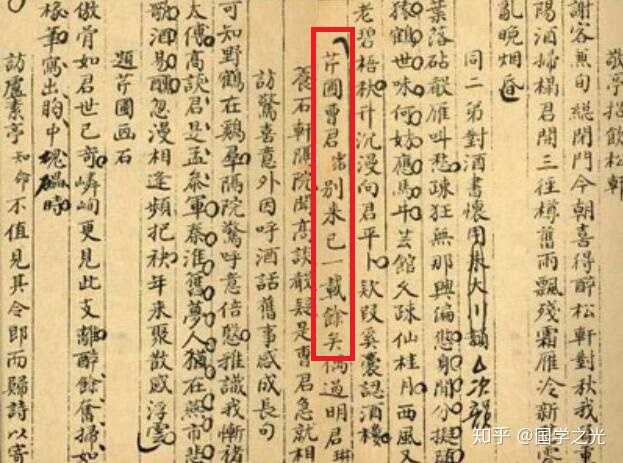 敬亭招飲松軒
謝客無句總閉門今朝喜得醉松軒對秋我重
陽酒掃榻君開三徑樽舊雨飄殘霜雁冷新寒
亂晚烟昏
同二弟對酒書懷用朱大川韻次韻
葉落砧聲雁叫愁疎狂無那興偏身閒分
猿鶴世味何妨應馬牛芸館久疎仙桂月西風又
老碧梧秋升沉漫向君平卜欵段溪濃認酒樓
芹圃曹君霑别來已一載餘矣偶過明君琳
養石軒隔院聞高談聲疑是曹君急就相
訪驚喜意外因呼酒話舊事感成長句
可知野鶴在雞羣隔院驚呼意倍慇雅識我慚褚
太傅高談君是孟參軍秦淮舊夢人猶在燕市悲
歌酒易醺忽漫相逢頻把袂年來聚散感浮雲
題芹圃画石
傲骨如君世已奇嶙峋更見此支離醉餘奮掃如
椽筆寫出胸中磈磊時
訪盧素亭知命不值見其令郎而歸詩以寄
知乎 @国学之光